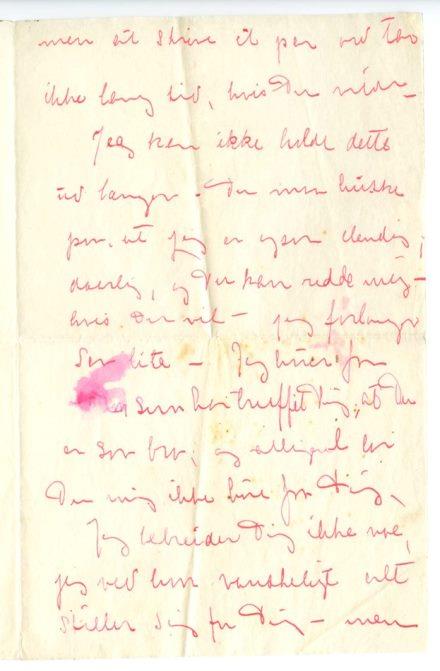 men at skrive et par ord tar
ikke lang tid, hvis Du vilde –
Jeg kan ikke holde dette
ud længer – Du maa huske
paa, at jeg er syg og elendig,
daarlig, og Du kan redde mig –
hvis Du vil – jeg forlanger
saa lite – Jeg hører fra
som har truffet Dig, at Du
er saa bra; og alligevel lar
Du mig ikke høre fra Dig.
Jeg bebreider Dig ikke noe,
jeg ved hvor vanskeligt alt
stiller sig for Dig – men